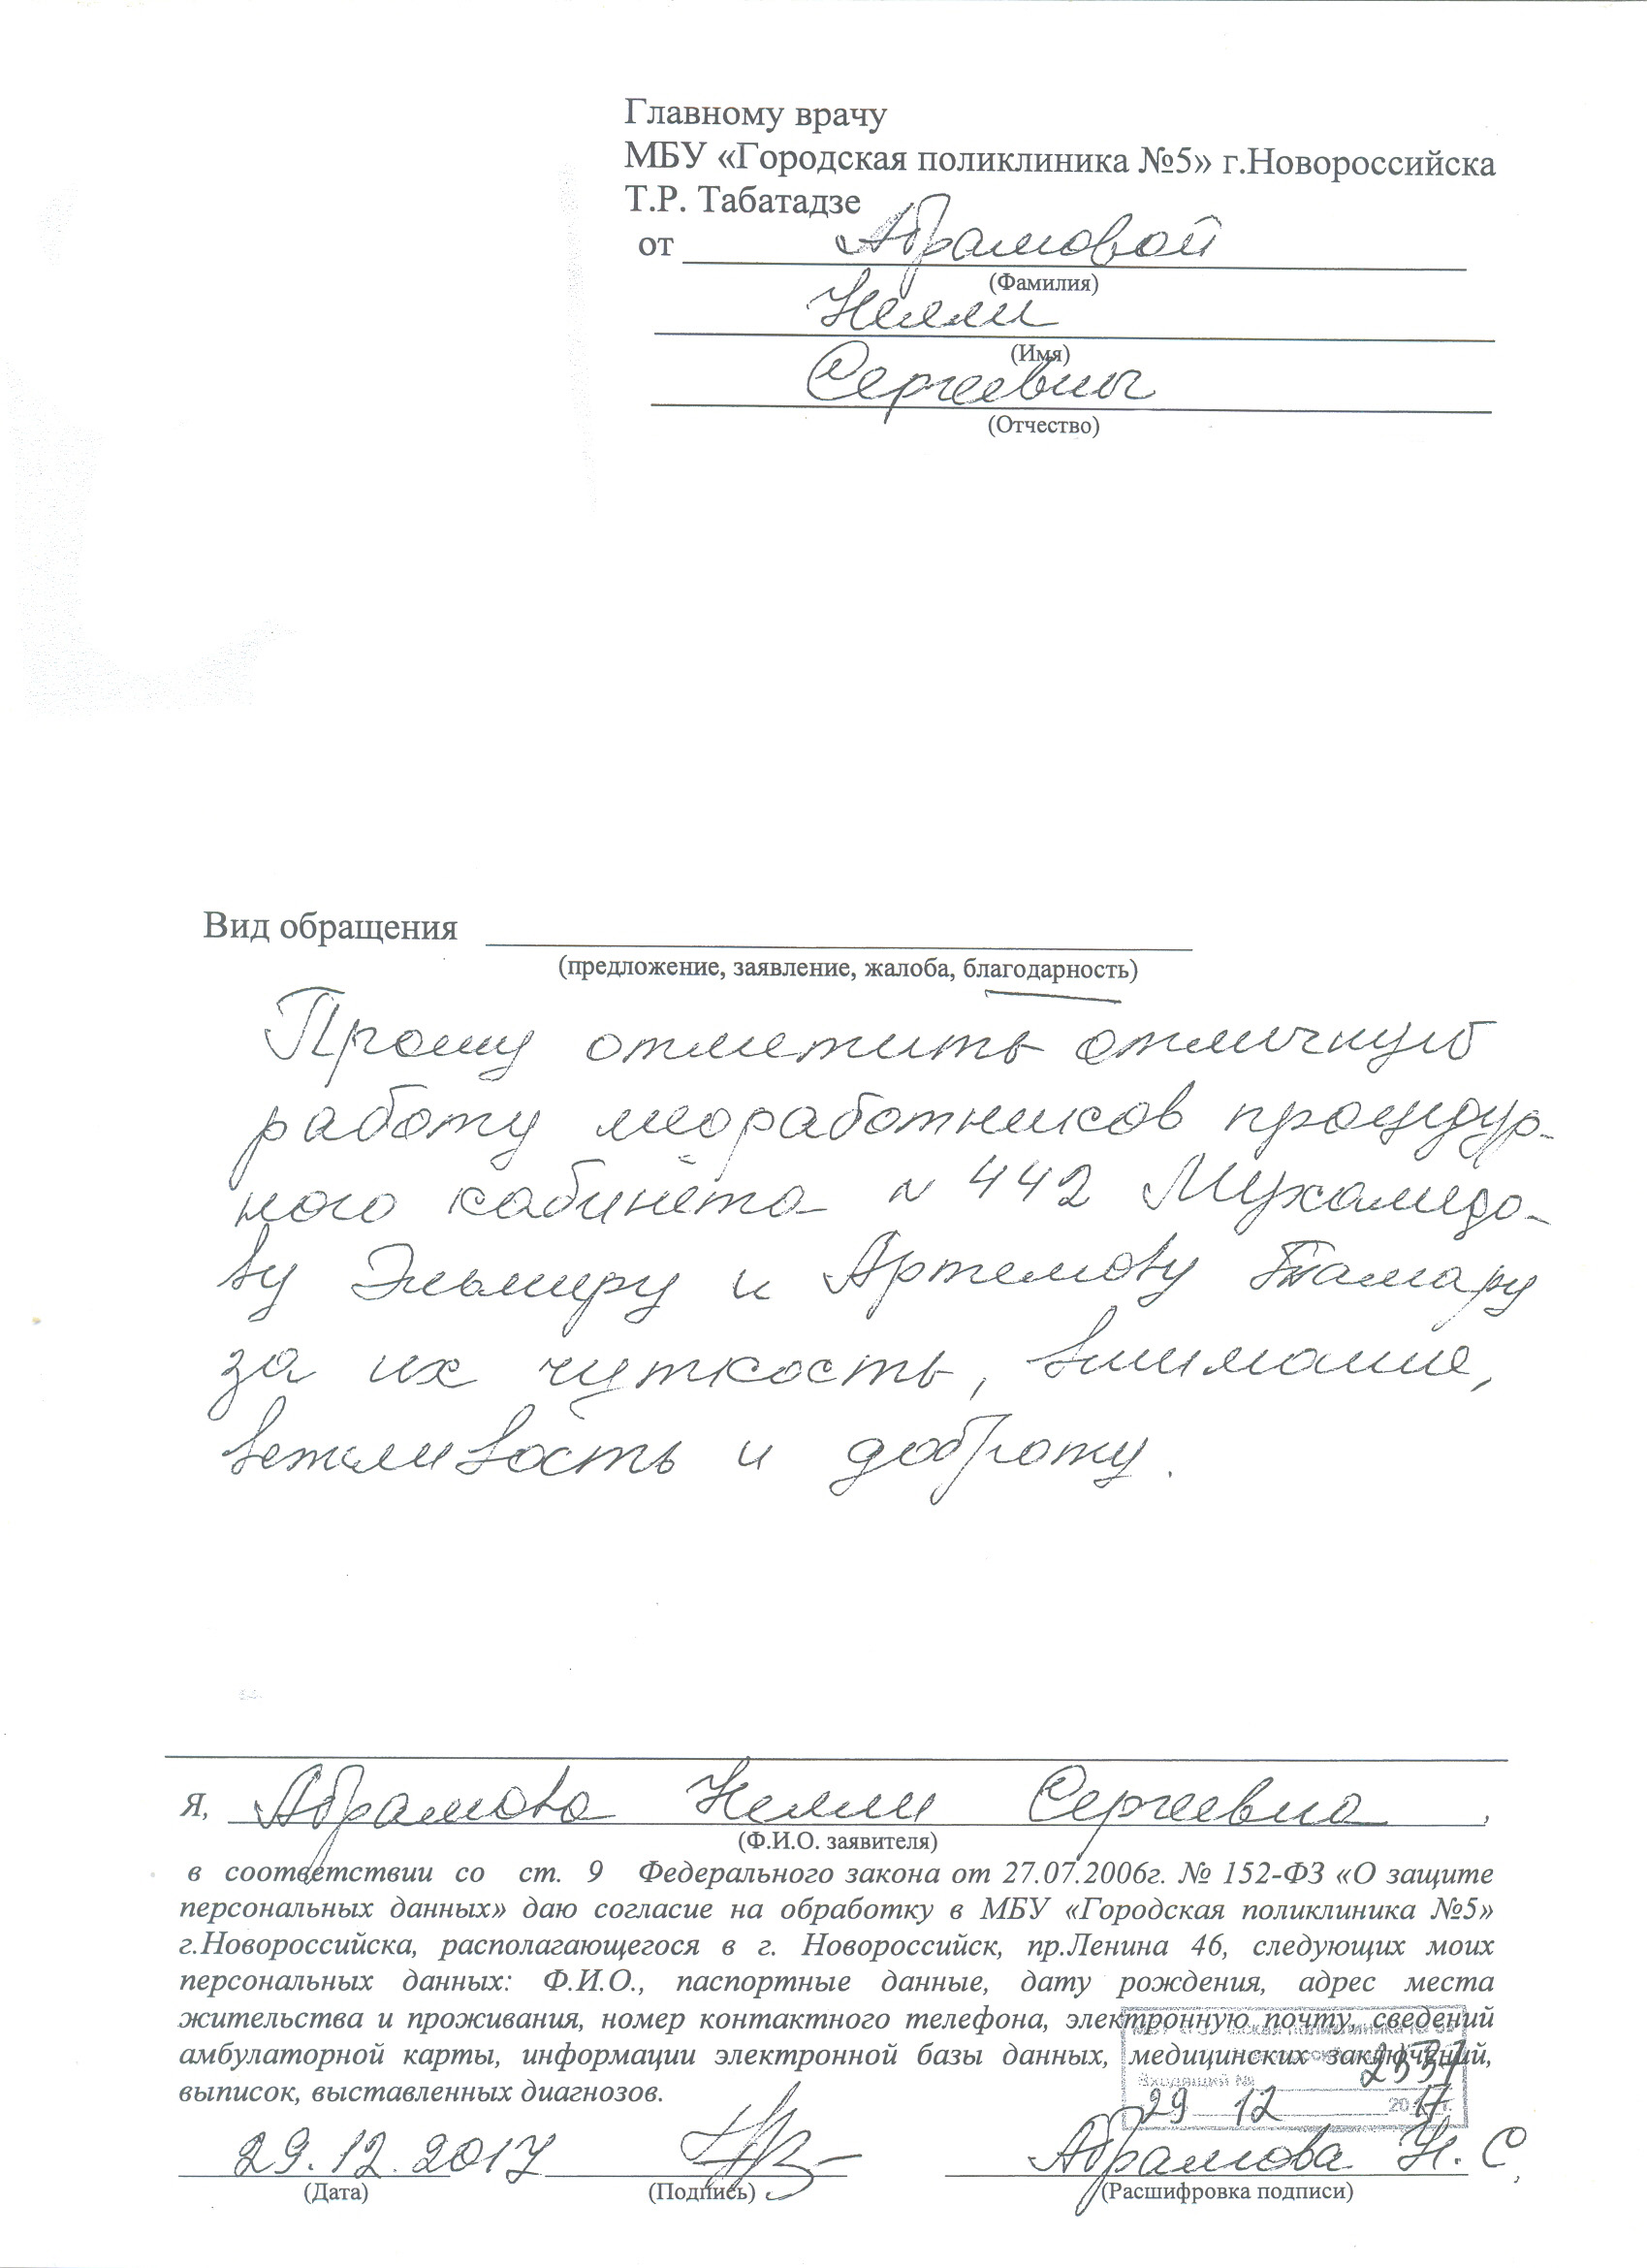 Главному врачу
МБУ «Городская поликлиника №5» г.Новороссийска
Т.Р. Табатадзе
от Абрамовой
(Фамилия)
Нелли
(Имя)
Сергеевны
(Отчество)
Вид обращения
(предложение, заявление, жалоба, благодарность)
Прошу отметить отличную
работу медработников процедур-
ного кабинета N 442 Мухамедо-
ву Эльмиру и Артемову Тамару
за их чуткость, внимание,
вежливость и доброту.
Я, Абрамова Нелли Сергеевна ,
(Ф.И.О. заявителя)
в соответствии со ст. 9 Федерального закона от 27.07.2006г. № 152-ФЗ «О защите
персональных данных» даю согласие на обработку в МБУ «Городская поликлиника №5»
г.Новороссийска, располагающегося в г. Новороссийск, пр.Ленина 46, следующих моих
персональных данных: Ф.И.О., паспортные данные, дату рождения, адрес места
жительства и проживания, номер контактного телефона, электронную почту, сведений
амбулаторной карты, информации электронной базы данных, медицинских заключений,
выписок, выставленных диагнозов.
Входящий №
29 12 2017 г.
29.12.2017 Абрамова Н. С.
(Дата) (Подпись) (Расшифровка подписи)